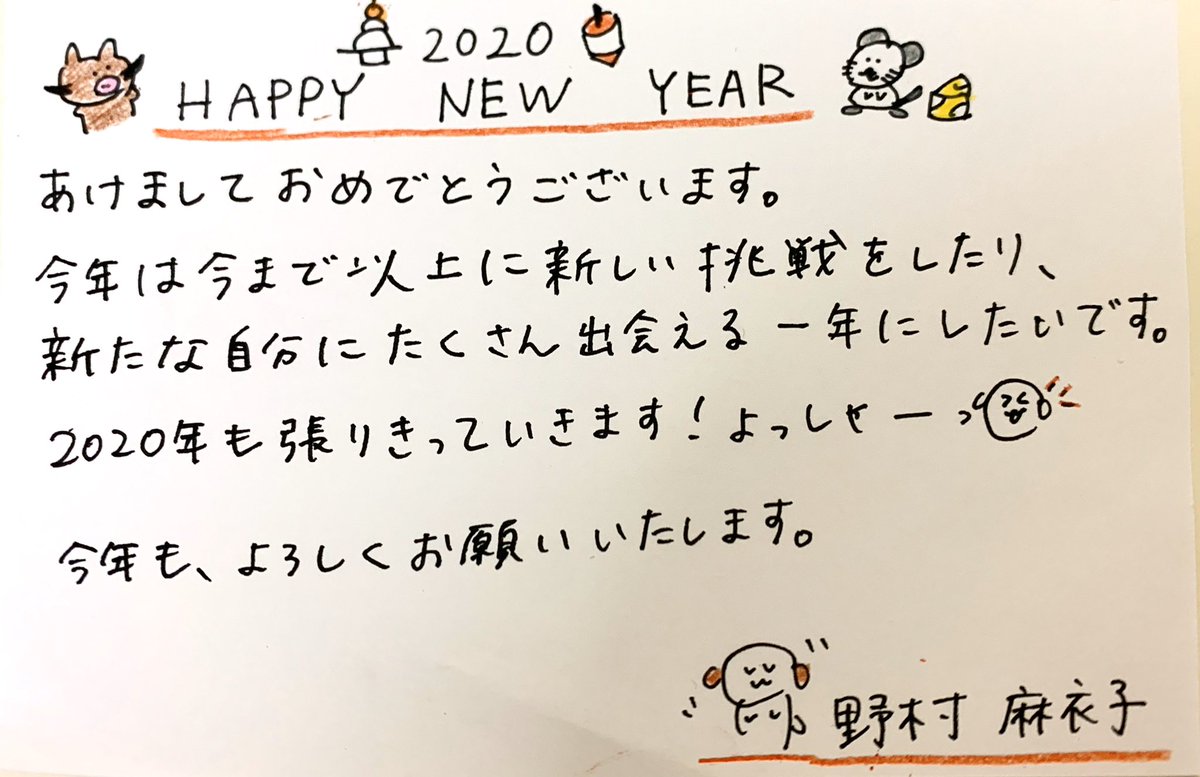 2020
HAPPY NEW YEAR
あけましておめでとうございます。
今年は今まで以上に新しい挑戦をしたり、
新たな自分にたくさん出会える一年にしたいです。
2020年も張りきっていきます！よっしゃーっ
今年も、よろしくお願いいたします。
野村 麻衣子